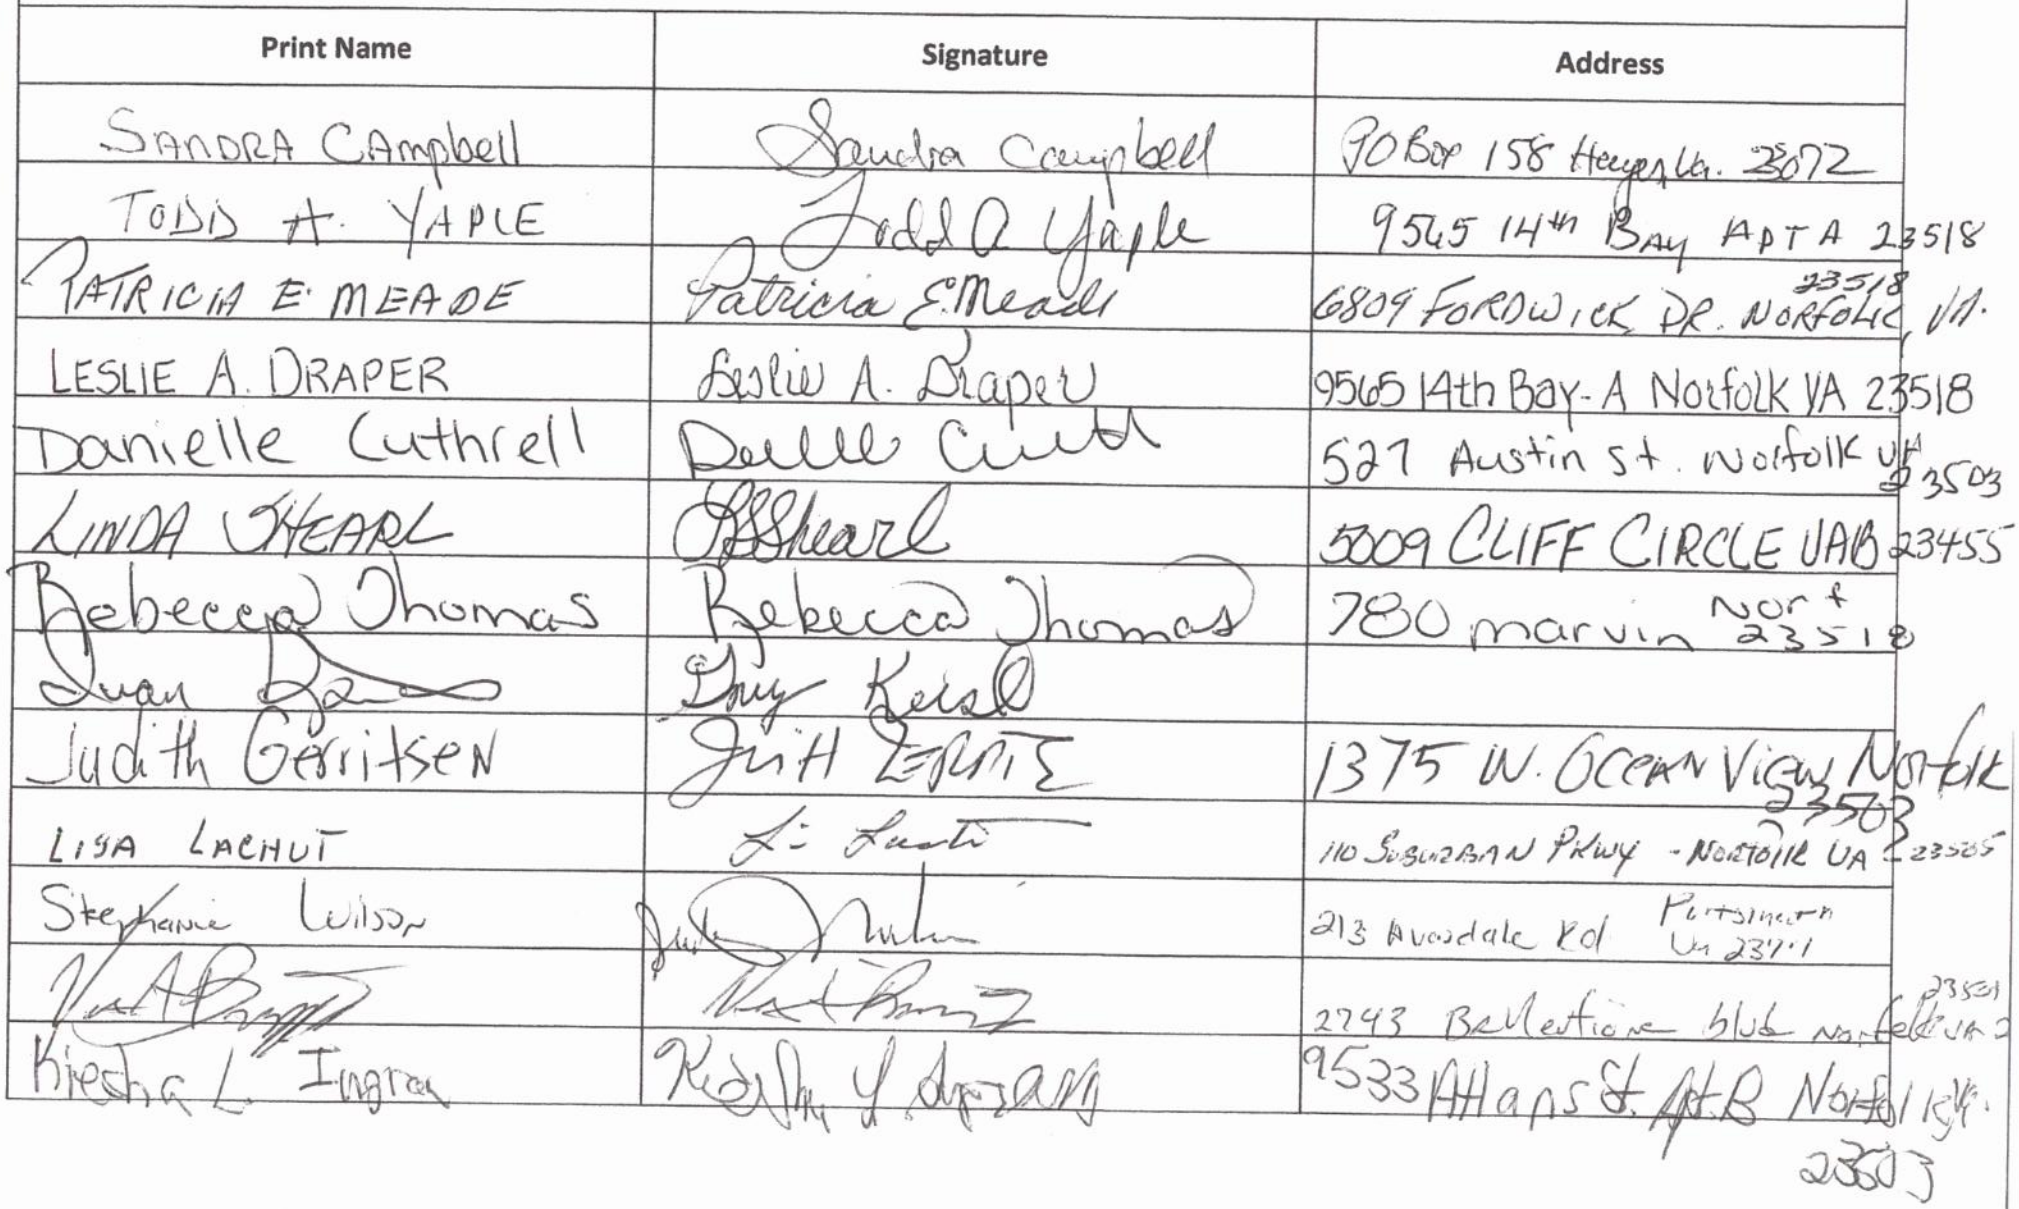 Print Name Signature Address
SANDRA CAmpbell Sandra Campbell PO Box 158 Hayes, Va. 23072
TODD A. YAPLE Todd A Yaple 9565 14th BAY APT A 23518
PATRICIA E. MEADE Patricia E. Meade 6809 FORDWICK DR. NORFOLK, VA. 23518
LESLIE A. DRAPER Leslie A. Draper 9565 14th Bay-A Norfolk VA 23518
Danielle Cuthrell 527 Austin St. Norfolk VA 23503
LINDA SHEARL Shearl 5009 CLIFF CIRCLE VAB 23455
Rebecca Thomas Rebecca Thomas 780 marvin Norf 23518
Judith Gerritsen 1375 W. OCEAN View Norfolk 23503
LISA LACHUT 110 SUBURBAN PKWY - NORFOLK VA 23505
Stephanie Wilson 213 Rd Portsmouth Va
2743 blvd Norfolk VA
Kiesha L. Ingram 9533 St. Apt. B Norfolk Va.
23503